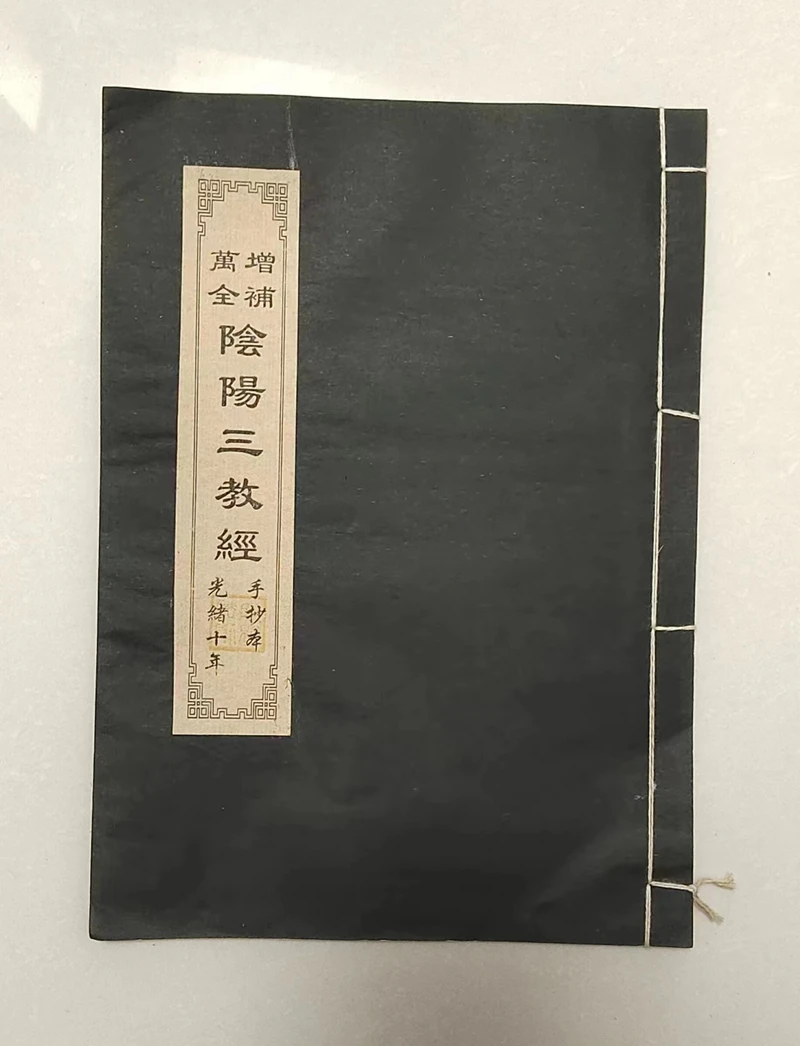 增補
萬全
陰陽三教經
手抄本
光緒十年